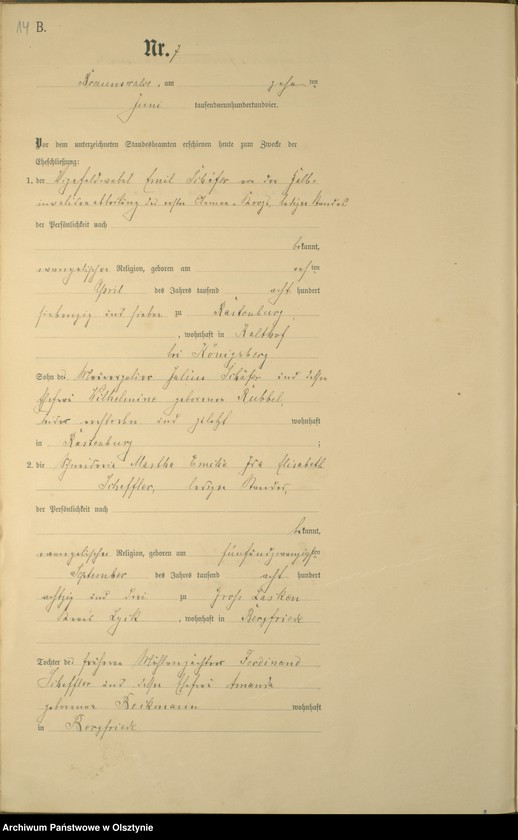 14 B.
Nr. 7
Braunswalde, am zehnten
Juni tausendneunhundertundvier.
Vor dem unterzeichneten Standesbeamten erschienen heute zum Zwecke der
Eheschließung:
1. der Vizefeldwebel Emil Schäfer von der Halb-
invalidenabteilung des ersten Armee-Korps, ledigen Standes
der Persönlichkeit nach
bekannt,
evangelischer Religion, geboren am ten
April des Jahres tausend acht hundert
siebenzig und sieben zu Rastenburg,
, wohnhaft in Kalthof
bei Königsberg
Sohn des Julius Schäfer und dessen
Ehefrau Wilhelmine geborenen
beide verstorben und zuletzt wohnhaft
in Rastenburg ;
2. die Schneiderin Martha Emilie Ida Elisabeth
Scheffler, ledigen Standes,
der Persönlichkeit nach
bekannt,
evangelischer Religion, geboren am fünfundzwanzigsten
September des Jahres tausend acht hundert
achtzig und drei zu Groß Lasken
Kreis Lyck , wohnhaft in Bergfriede
Tochter des früheren Mühlenpächters Ferdinand
Scheffler und dessen Ehefrau Amanda
geborenen wohnhaft
in Bergfriede
Archiwum Państwowe w Olsztynie